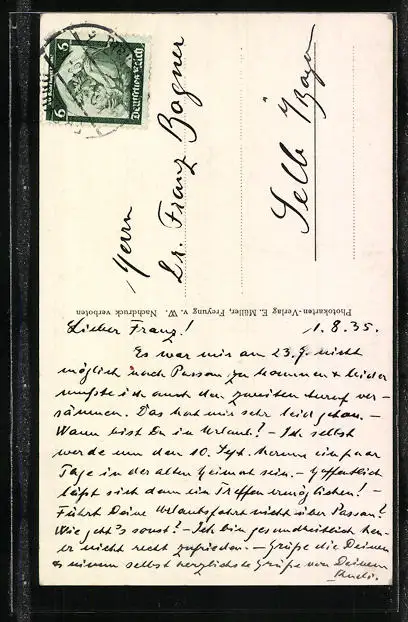 6
Deutsches Reich
6
Herrn
Dr. Franz Bogner
Selb i/Bayn
Photokarten-Verlag E. Müller, Freyung v. W. Nachdruck verboten
Lieber Franz! 1.8.35.
Es war mir am 23.7. nicht
möglich nach Passau zu kommen + leider
mußte ich auch den zweiten Anruf ver-
säumen. Das hat mir sehr leid getan. –
Wann bist Du in Urlaub? – Ich selbst
werde um den 10. Sept. herum ein paar
Tage in der alten Heimat sein. – Hoffentlich
läßt sich dann ein Treffen ermöglichen! –
Führt Deine Urlaubsfahrt nicht über Passau?
Wie geht's sonst? – Ich bin gesundheitlich heu-
er nicht recht zufrieden. – Grüße die Deinen
& nimm selbst herzlichste Grüße von Deinem
Rudi.